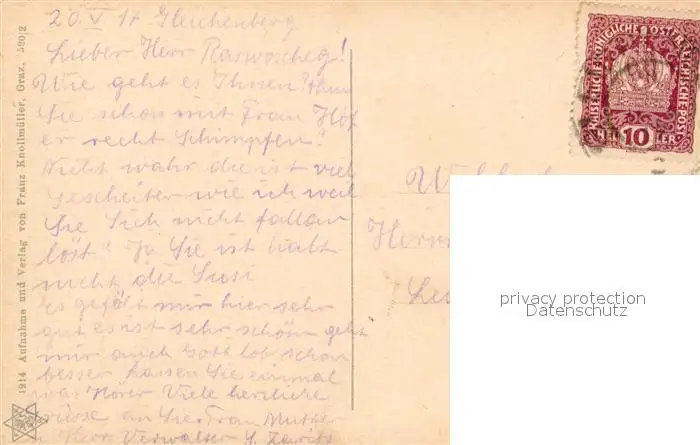 20 V 17 Gleichenberg
Lieber Herr Raswoscheg!
Wie geht es Ihnen?
Sie schon mit Frau Höf
er recht Schimpfen?
Nicht wahr die ist viel
Gescheiter wie ich weil
Sie Sich nicht fallen
löst? Ja Sie ist halt
nicht die Susi
Es gefält mir hier sehr
gut es ist sehr schön geht
mir auch Gott lob schon
besser Lassen Sie einmal
was Hören Viele herzliche
Grüsse an Sie Frau Mutter
u Herr Verwalter S.
1914 Aufnahme und Verlag von Franz Knollmüller, Graz, 520/2
KAISERLICHE KÖNIGLICHE ÖSTERREICHISCHE POST
10
HELLER
Herrn
privacy protection
Datenschutz